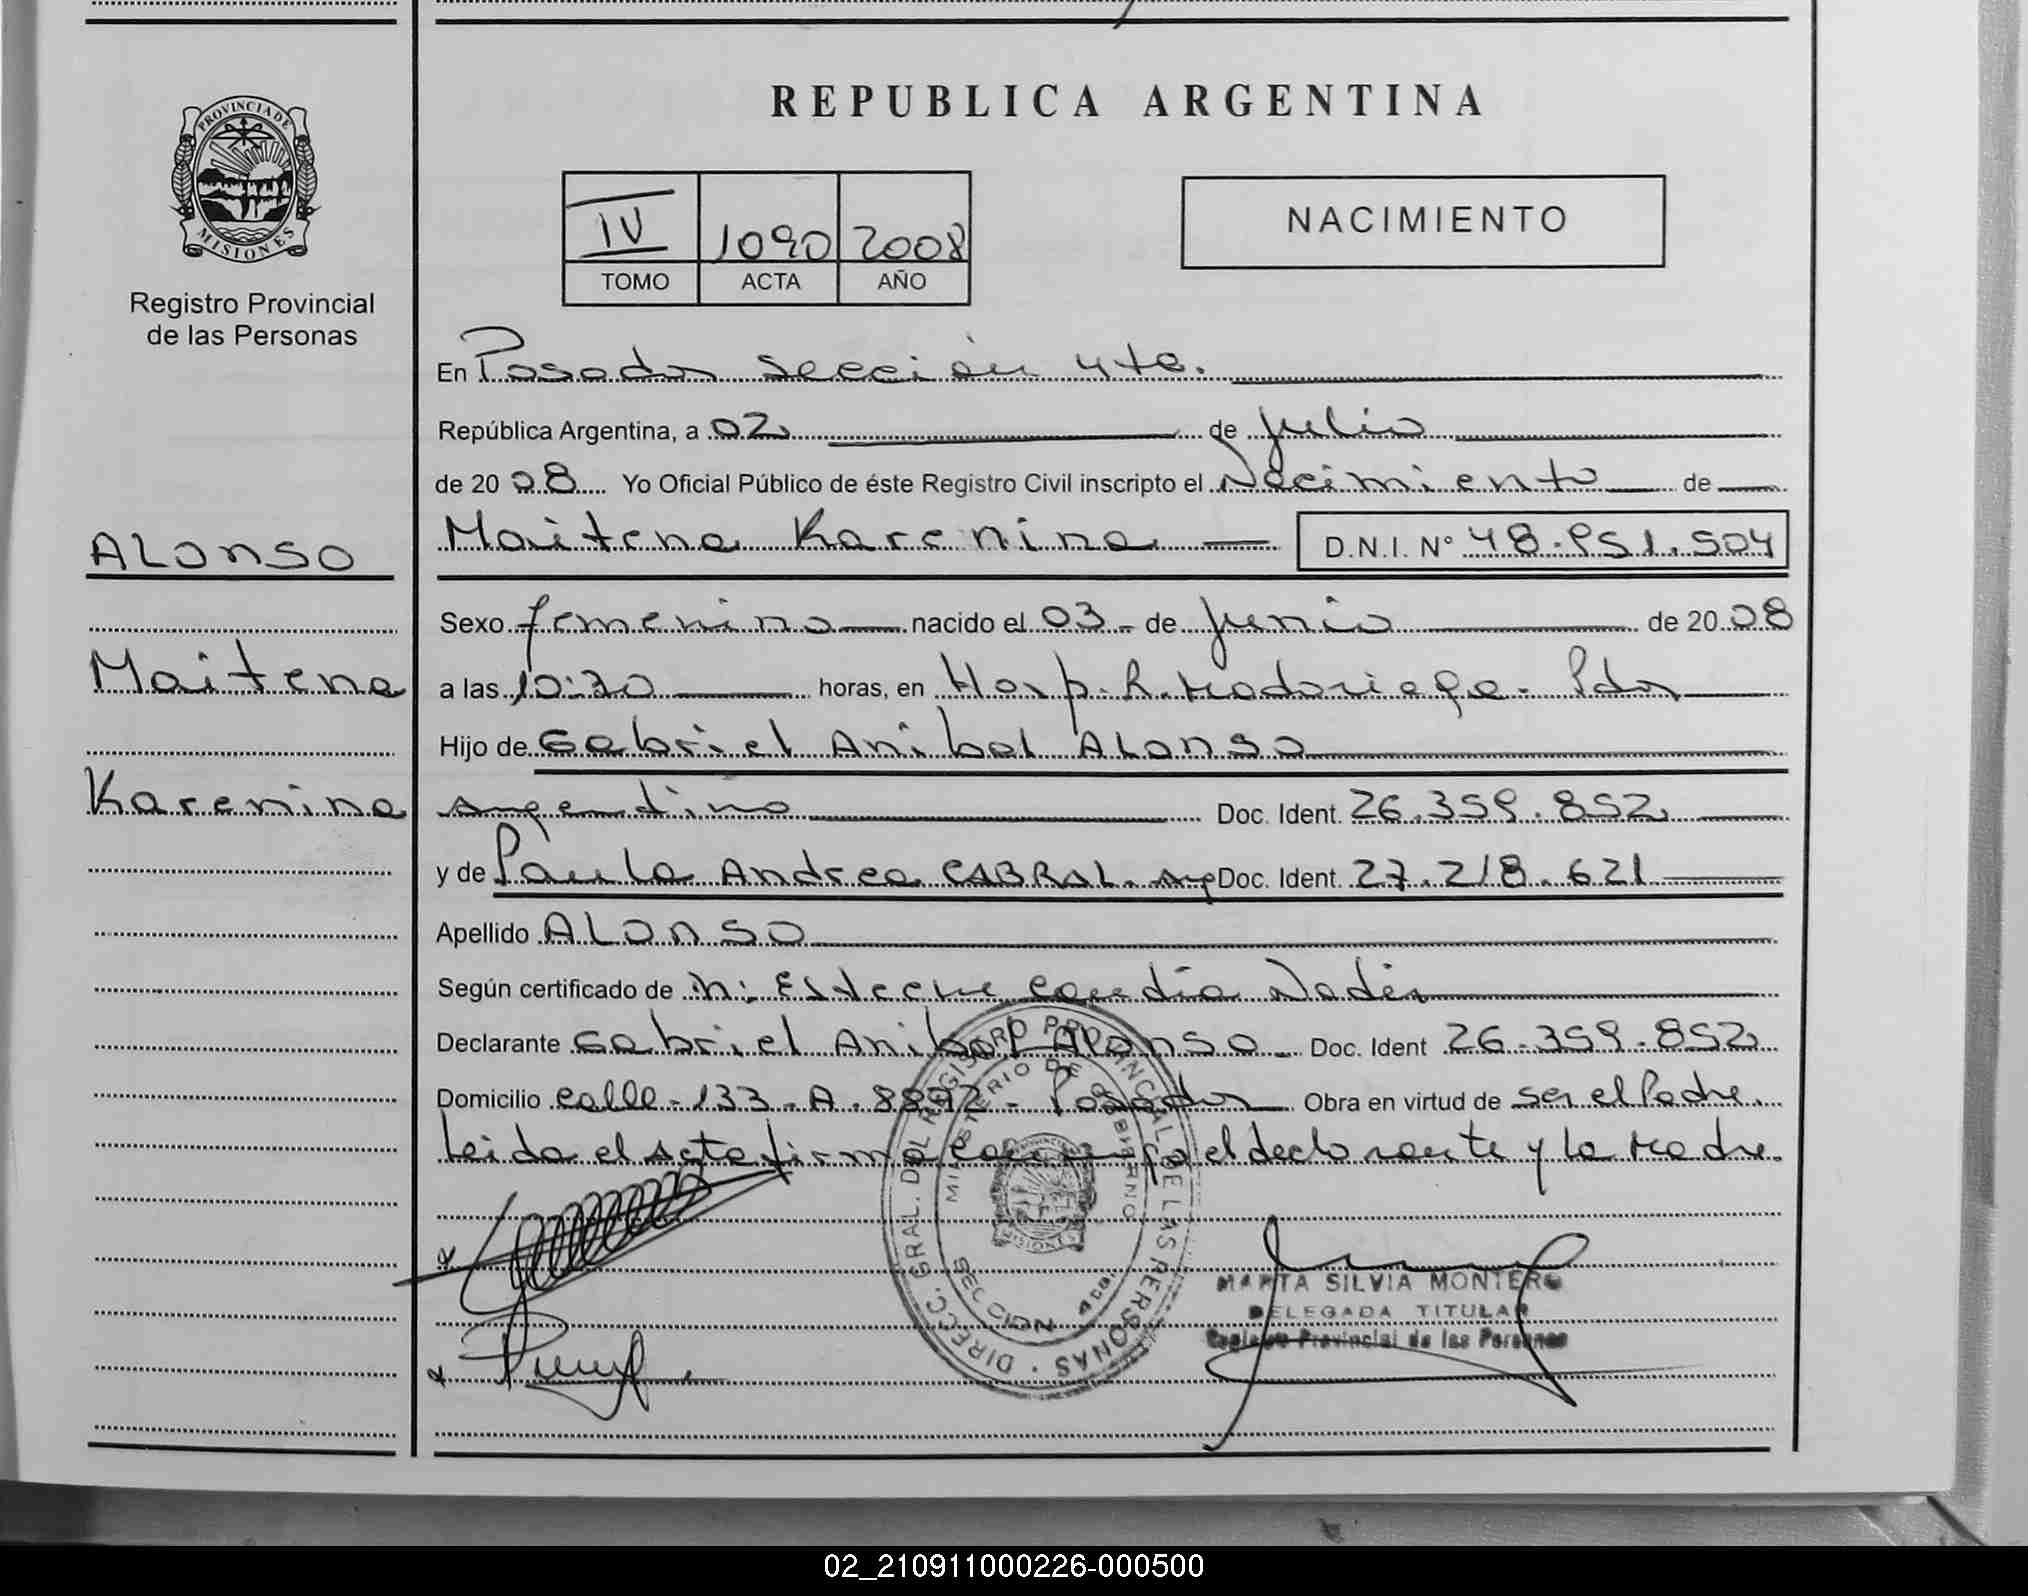 PROVINCIA DE
MISIONES
Registro Provincial
de las Personas
ALONSO
Maitena
Karenina
REPUBLICA ARGENTINA
IV 1090 2008
TOMO ACTA AÑO
NACIMIENTO
En Posadas sección 4ta.
República Argentina, a 02 de julio
de 2008 Yo Oficial Público de éste Registro Civil inscripto el Nacimiento de
Maitena Karenina D.N.I. Nº 48.951.504
Sexo femenino nacido el 03 de junio de 2008
a las horas, en Hosp. R. Madariaga - Pdas
Hijo de Gabriel Anibal ALONSO
argentino Doc. Ident. 26.359.852
y de Paula Andrea CABRAL. Arg Doc. Ident. 27.218.621
Apellido ALONSO
Según certificado de
Declarante Gabriel Anibal Alonso Doc. Ident 26.359.852
Domicilio calle - 133 - A - Posadas Obra en virtud de ser el Padre.
Leida el acta firma conmigo el declarante y la Madre.
DIRECC. GRAL. DEL REGISTRO PROVINCIAL DE LAS PERSONAS
MINISTERIO DE GOBIERNO
SECCION
MARTA SILVIA MONTERO
DELEGADA TITULAR
Registro Provincial de las Personas
02_210911000226-000500